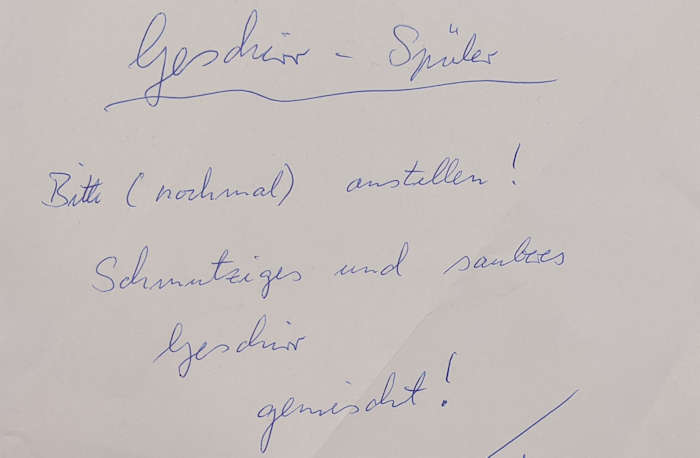 Geschirr - Spüler
Bitte (nochmal) anstellen!
Schmutziges und saubres
Geschirr
gemischt!